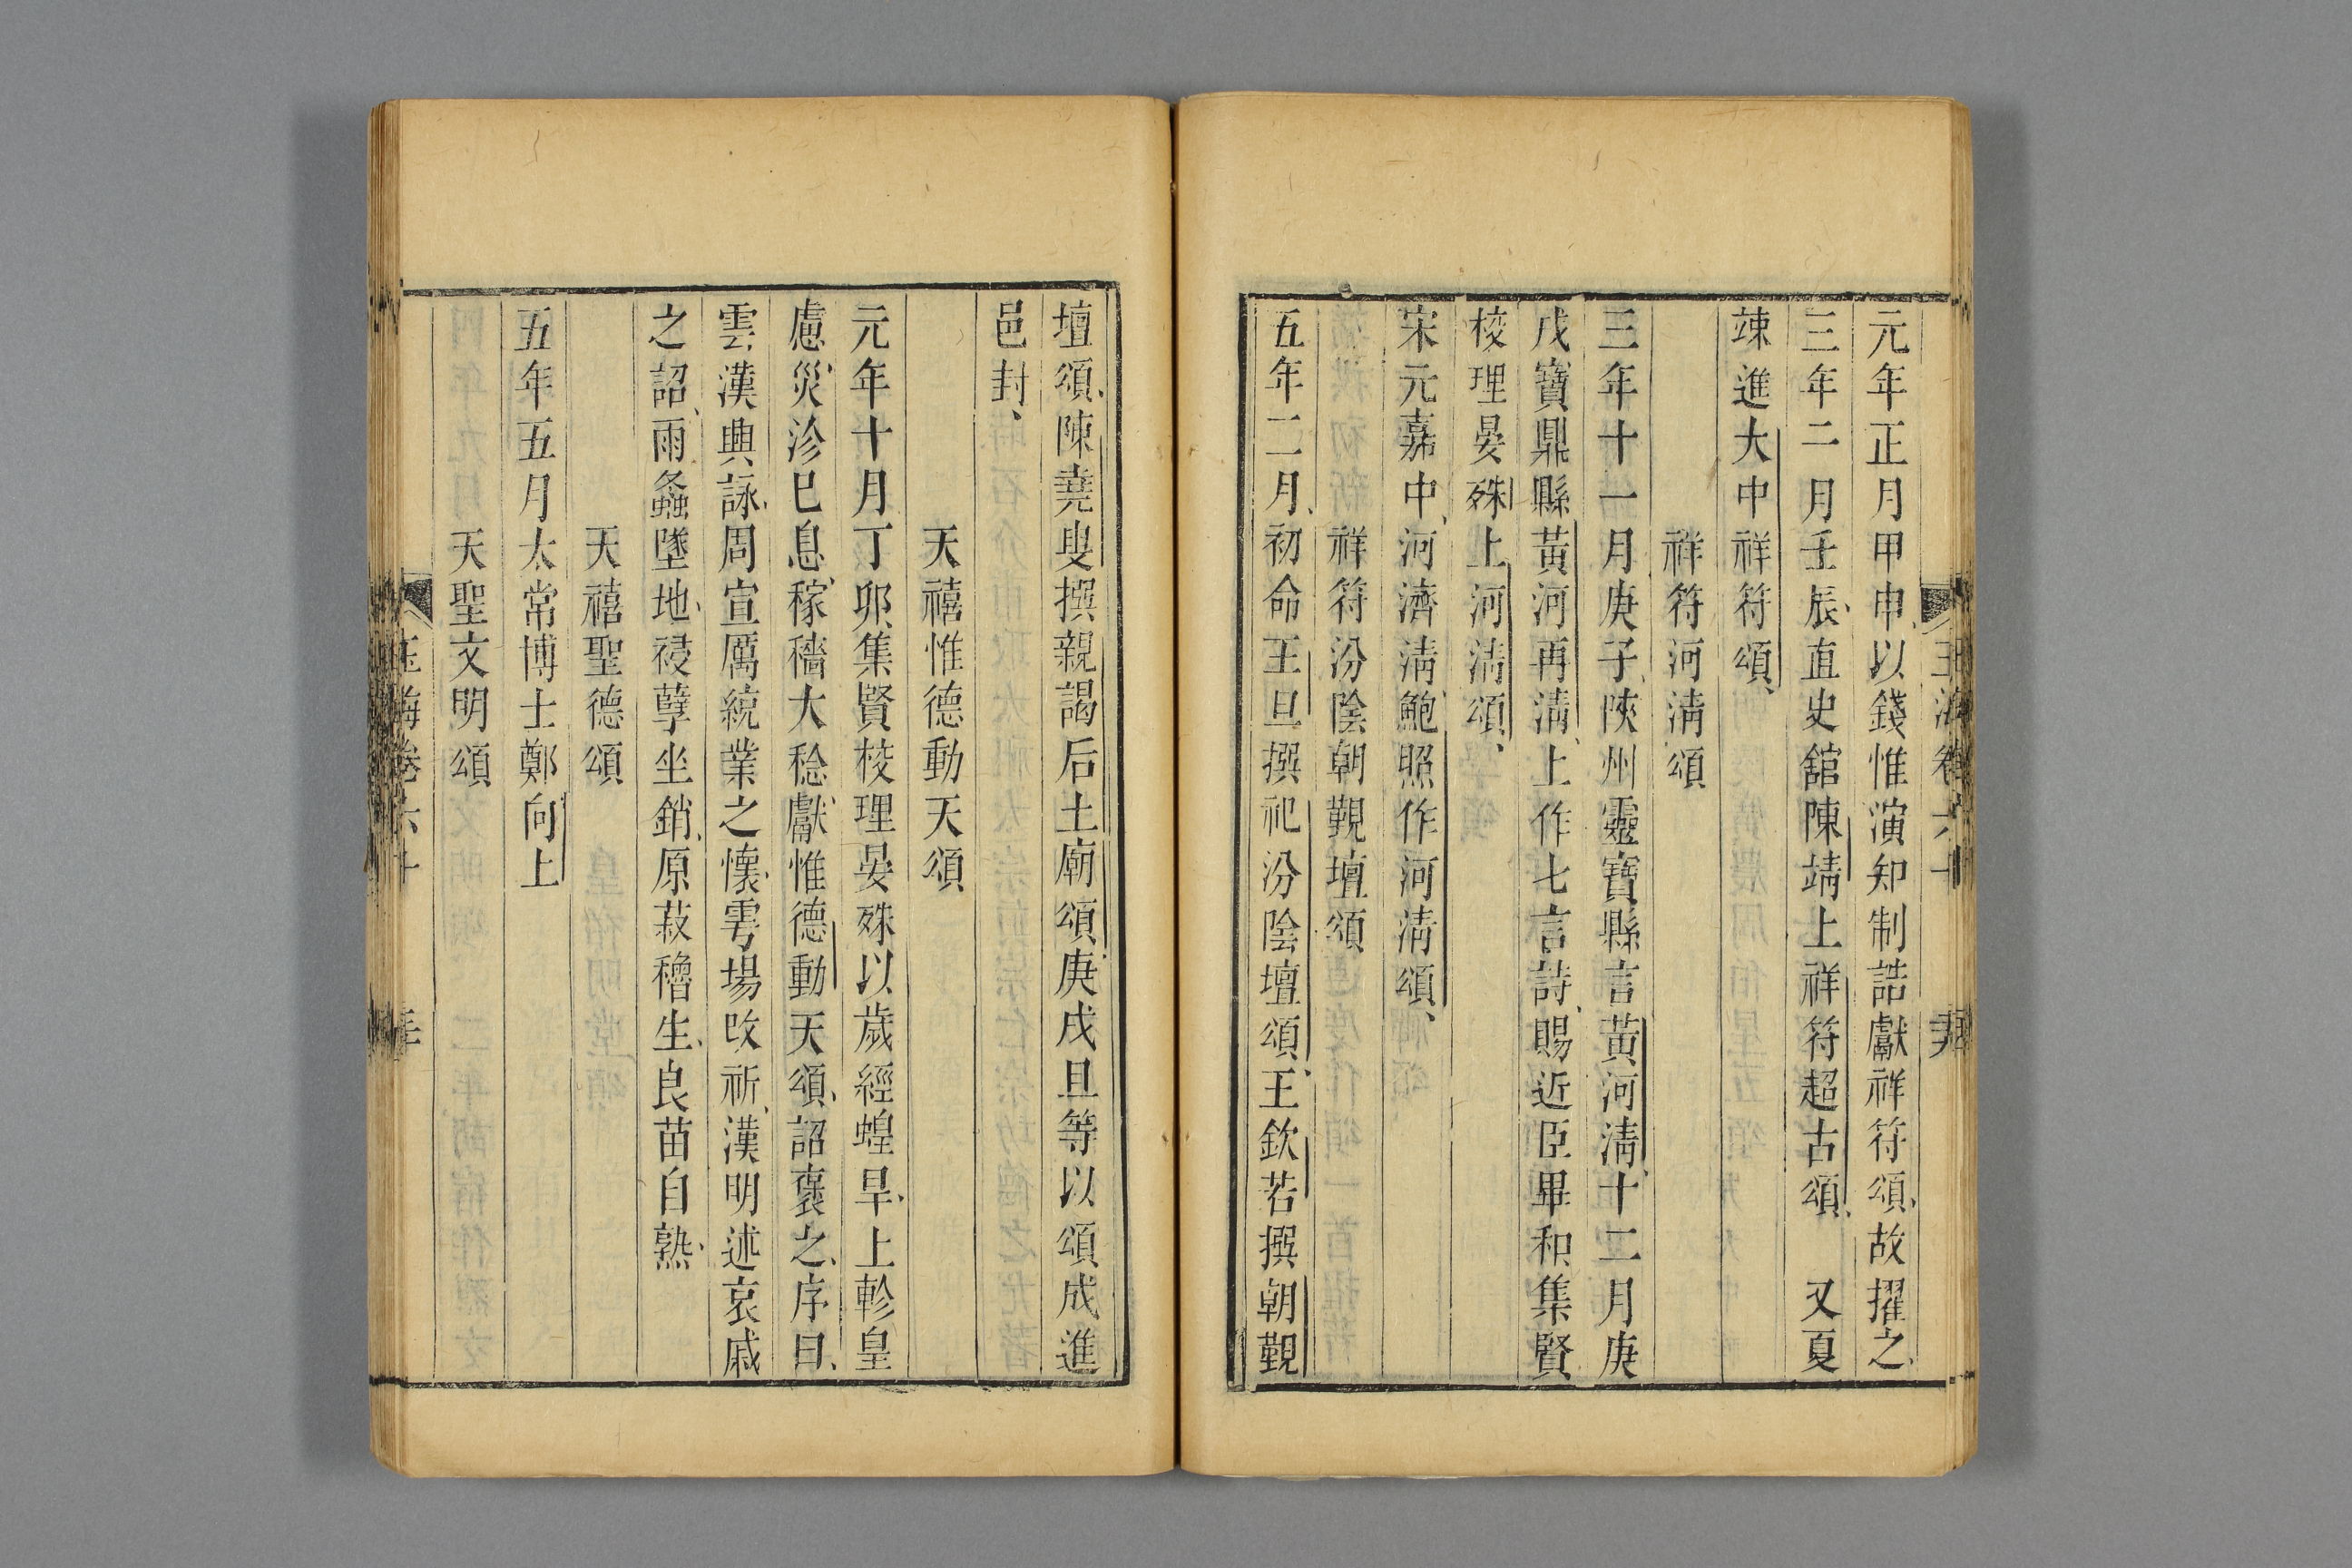 元年正月甲申以錢惟演知制誥獻祥符頌故擢之
三年二月壬辰直史舘陳靖上祥符超古頌　又夏
竦進大中祥符頌
祥符河淸頌
三年十一月庚子陜州靈寶縣言黃河淸十二月庚
戌寶鼎縣黃河再淸上作七言詩賜近臣畢和集賢
校理晏殊上河淸頌
宋元嘉中河濟淸鮑照作河淸頌
祥符汾陰朝覲壇頌
五年二月初命王旦撰祀汾陰壇頌王欽若撰朝覲
壇頌陳堯叟撰親謁后土廟頌庚戌旦等以頌成進
邑封
天禧惟德動天頌
元年十月丁卯集賢校理晏殊以歲經蝗旱上軫皇
慮災沴已息稼穡大稔獻惟德動天頌詔褒之序曰
雲漢興詠周宣厲統業之懷雩場改祈漢明述哀戚
之詔雨螽墜地祲孽坐銷原菽穭生良苗自熟
天禧聖德頌
五年五月太常博士鄭向上
天聖文明頌
玉海卷六十